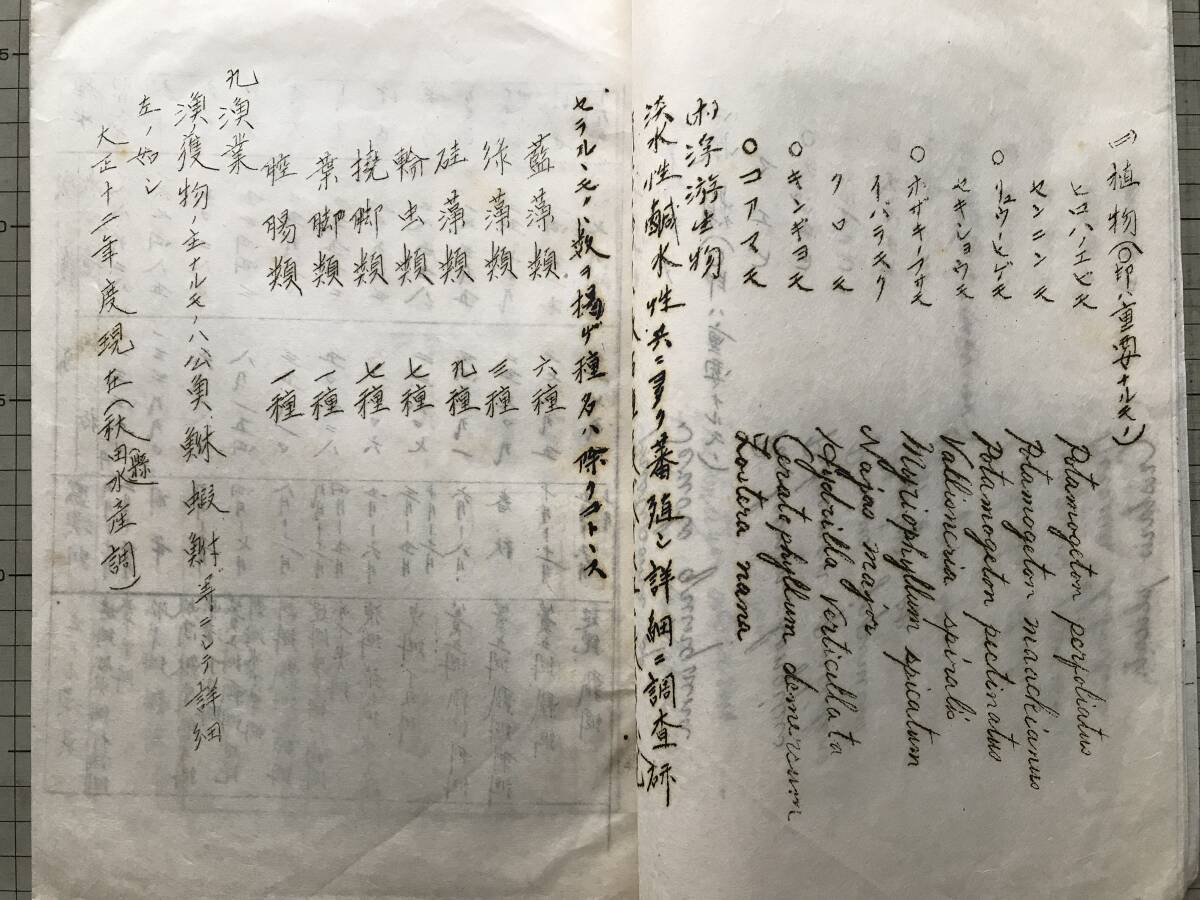 (二)植物(〇印ハ重要ナルモノ)
ヒロハノエビモ Potamogeton perfoliatus
センニンモ Potamogeton maackianus
〇リュウノヒゲモ Potamogeton pectinatus
セキショウモ Vallisneria spiralis
〇ホザキノフサモ Myriophyllum spicatum
イバラモク Najas major
クロモ Hydrilla verticillata
〇キンギョモ Ceratophyllum demersum
〇コアマモ Zostera nana
(ホ)浮游生物
淡水性鹹水性共ニ多ク蕃殖シ詳細ニ調査研
セラルヽモノハ数ヲ揚ゲ種名ハ除クコトヽス
藍藻類 六種
緑藻類 三種
硅藻類 九種
輪虫類 七種
撓脚類 七種
葉脚類 一種
腔腸類 一種
九漁業
漁獲物ノ主ナルモノハ公魚、鯎、蝦、鮒等ニシテ詳細
左ノ如シ
大正十二年度現在(秋田縣水産調)